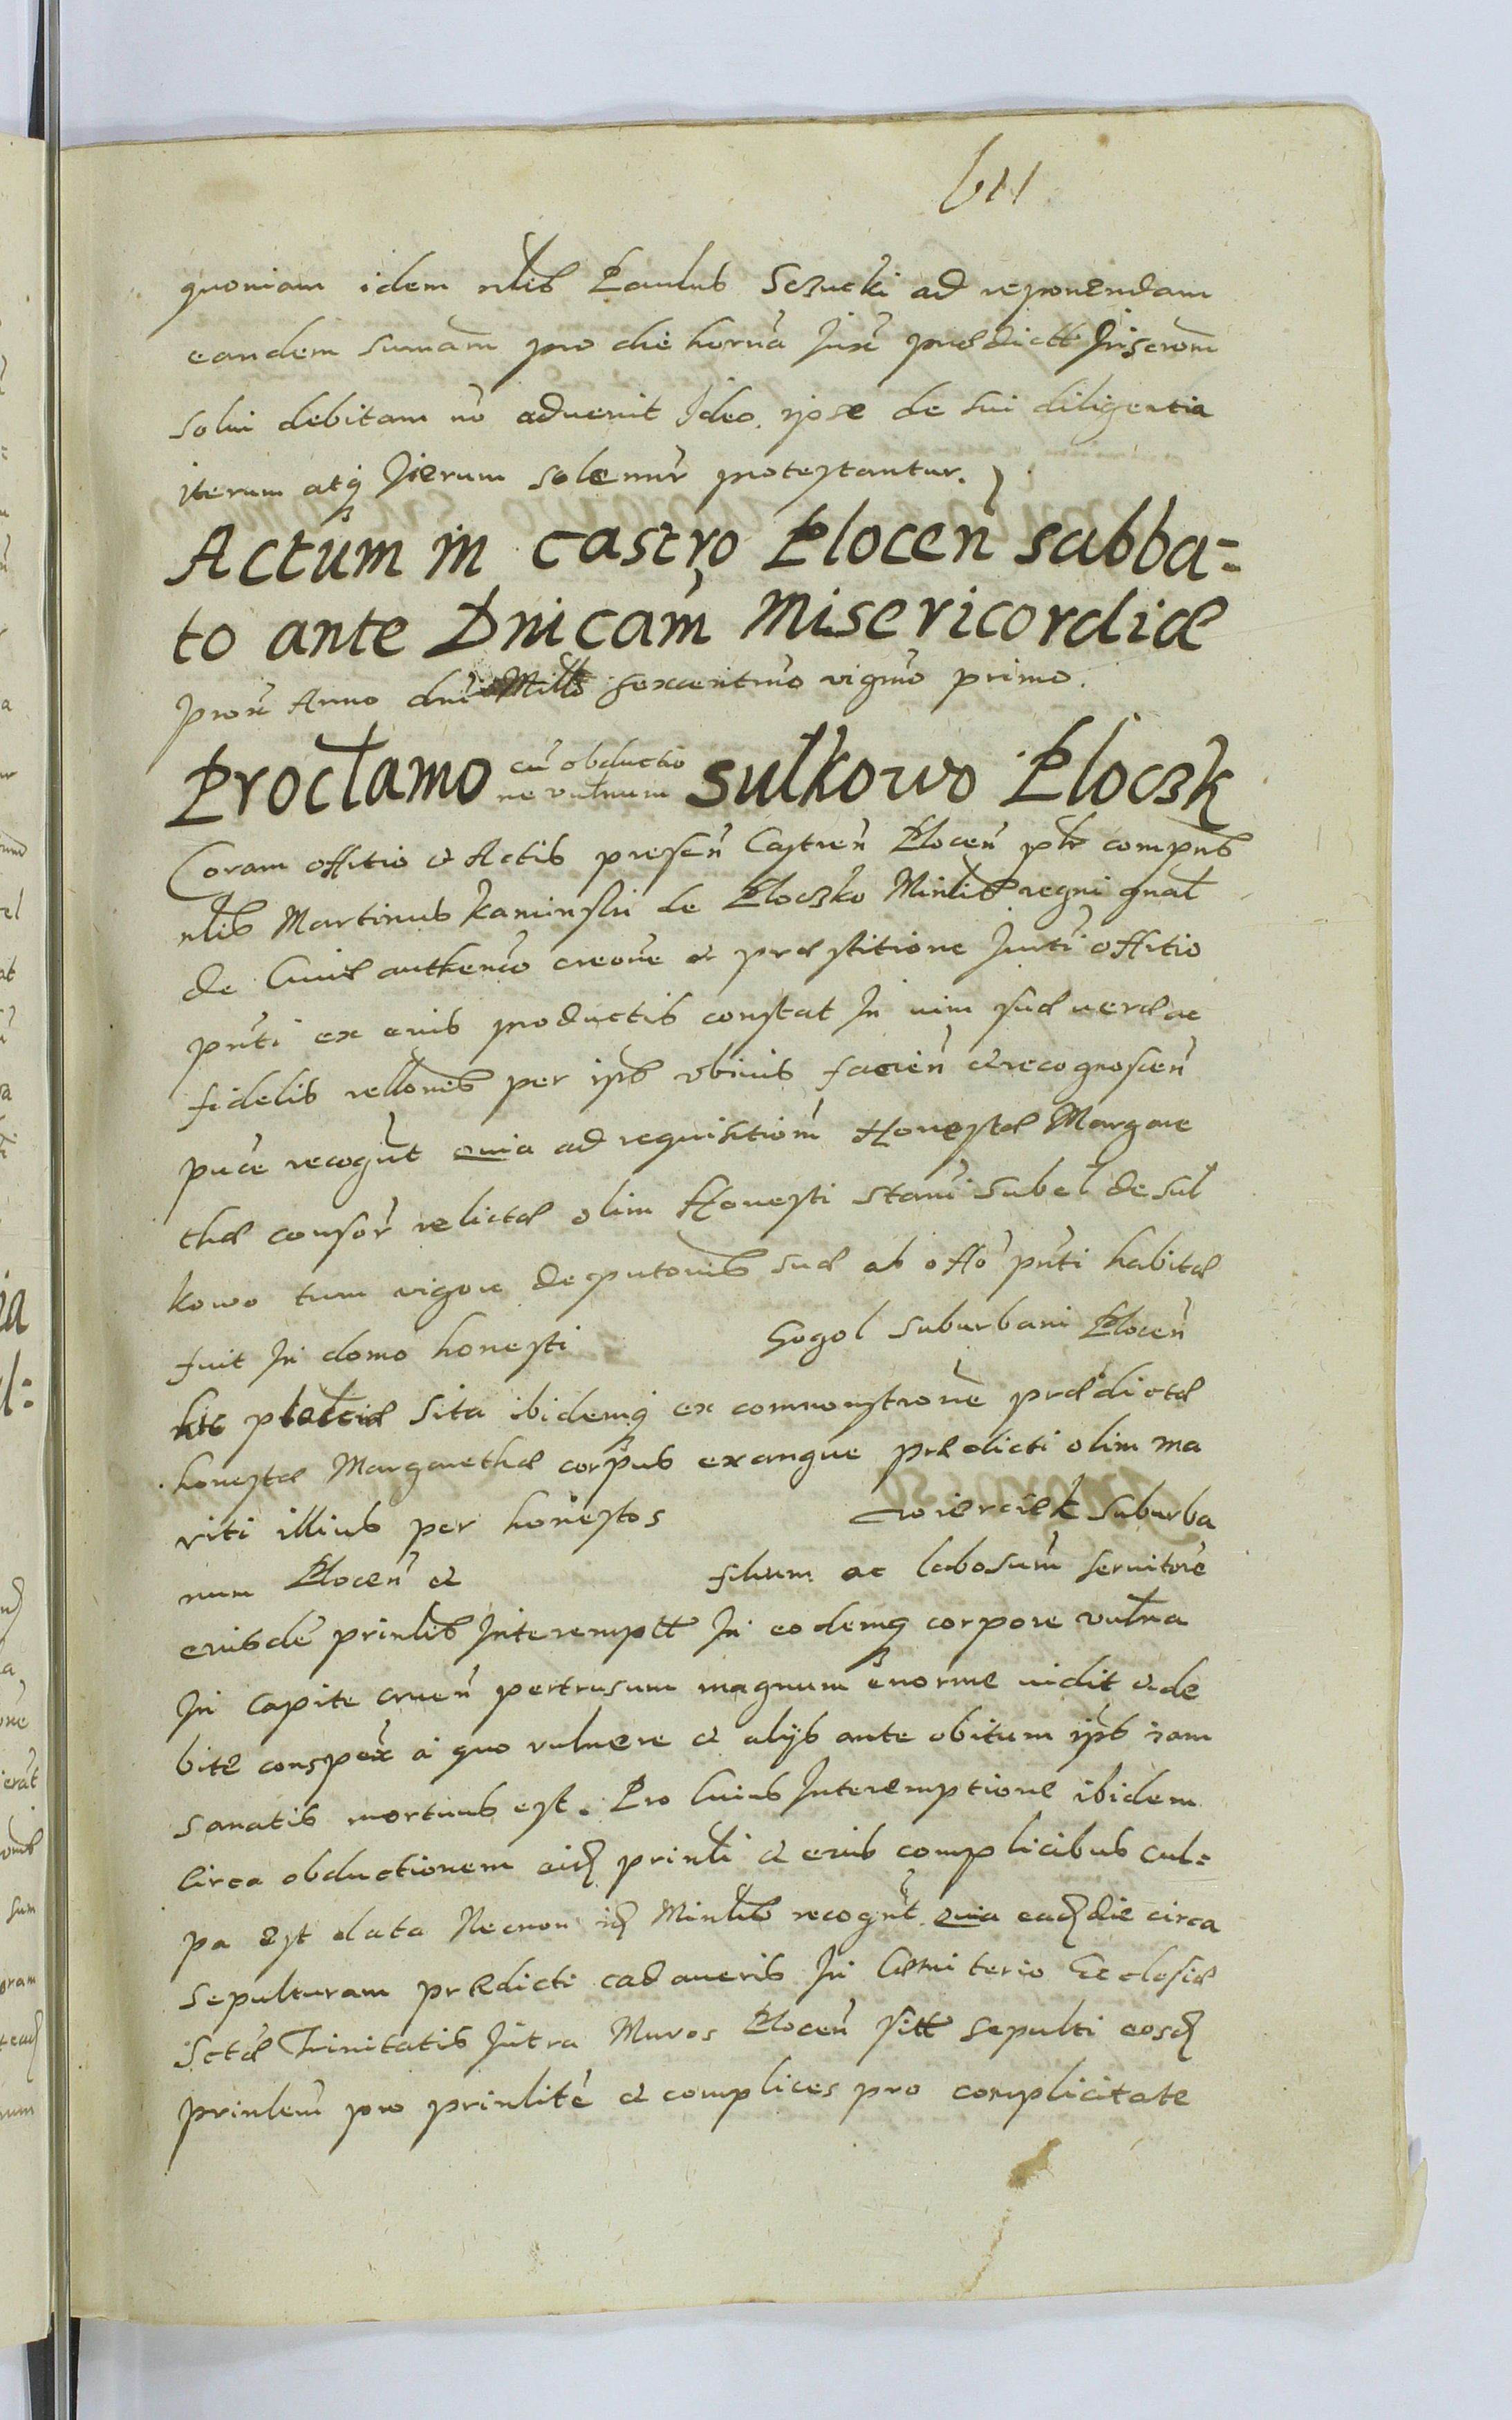 611
quoniam idem nlis Paulus Sczucki ad reponendam
eandem sumam pro die horna Jux praedictt Jnscrom
solui debitam no aduenit Jdeo. ipse de sui diligentia
iterum atq Jterum solemnr protestantur.
Actum in castro Plocen sabba=
to ante Dnicam Misericordiæ
prox Anno dni Millo sexcentmo vigmo primo.
Proclamo cu obductio
ne vulnum Sulkowo Ploczk
Coram offitio et Actis presen Castren Plocen pltr compns
nlis Martinus Kaminski de Ploczko Minlis regni gnal
de Cuius authenco creone et præstitione Jurti offitio
pnti ex eius productis constat Jn uim suæ veræ ac
fidelis rellonis per ips vbiuis facien et recognoscen
puce recognt quia ad requisitiom Honestæ Margare
thæ consor relictæ olim Honesti Stani Subel de Sul
kowo tum vigore deputonis suæ ab offo pnti habitæ
fuit Jn domo honesti Gogol suburbani Plocen
hic sita ibidemq ex comonstrone prædictæ
honestæ Margarethæ corpus exangue prædicti olim ma
riti illius per honestos Cwierciek suburba
num Plocen et filium ac labosum seruitore
eiusde prinlis Jnteremptt Jn eodemq corpore vulna
Jn Capite cruen pertusum magnum enorme uidit et de
bite conspex a quo vulnere et alijs ante obitum ips iam
sanatis mortuus est. Pro Cuius Jnteremptione ibidem
Circa obductionem eid prinli et eius complicibus cul=
pa est data Necnon id Minlis recognt quia ead die circa
sepulturam prædicti cadaueris Jn Cæmiterio Ecclesiæ
Sctæ Trinitatis Jntra Muros Plocen sitt sepulti eosd
prinlem pro prinlite et complices pro complicitate